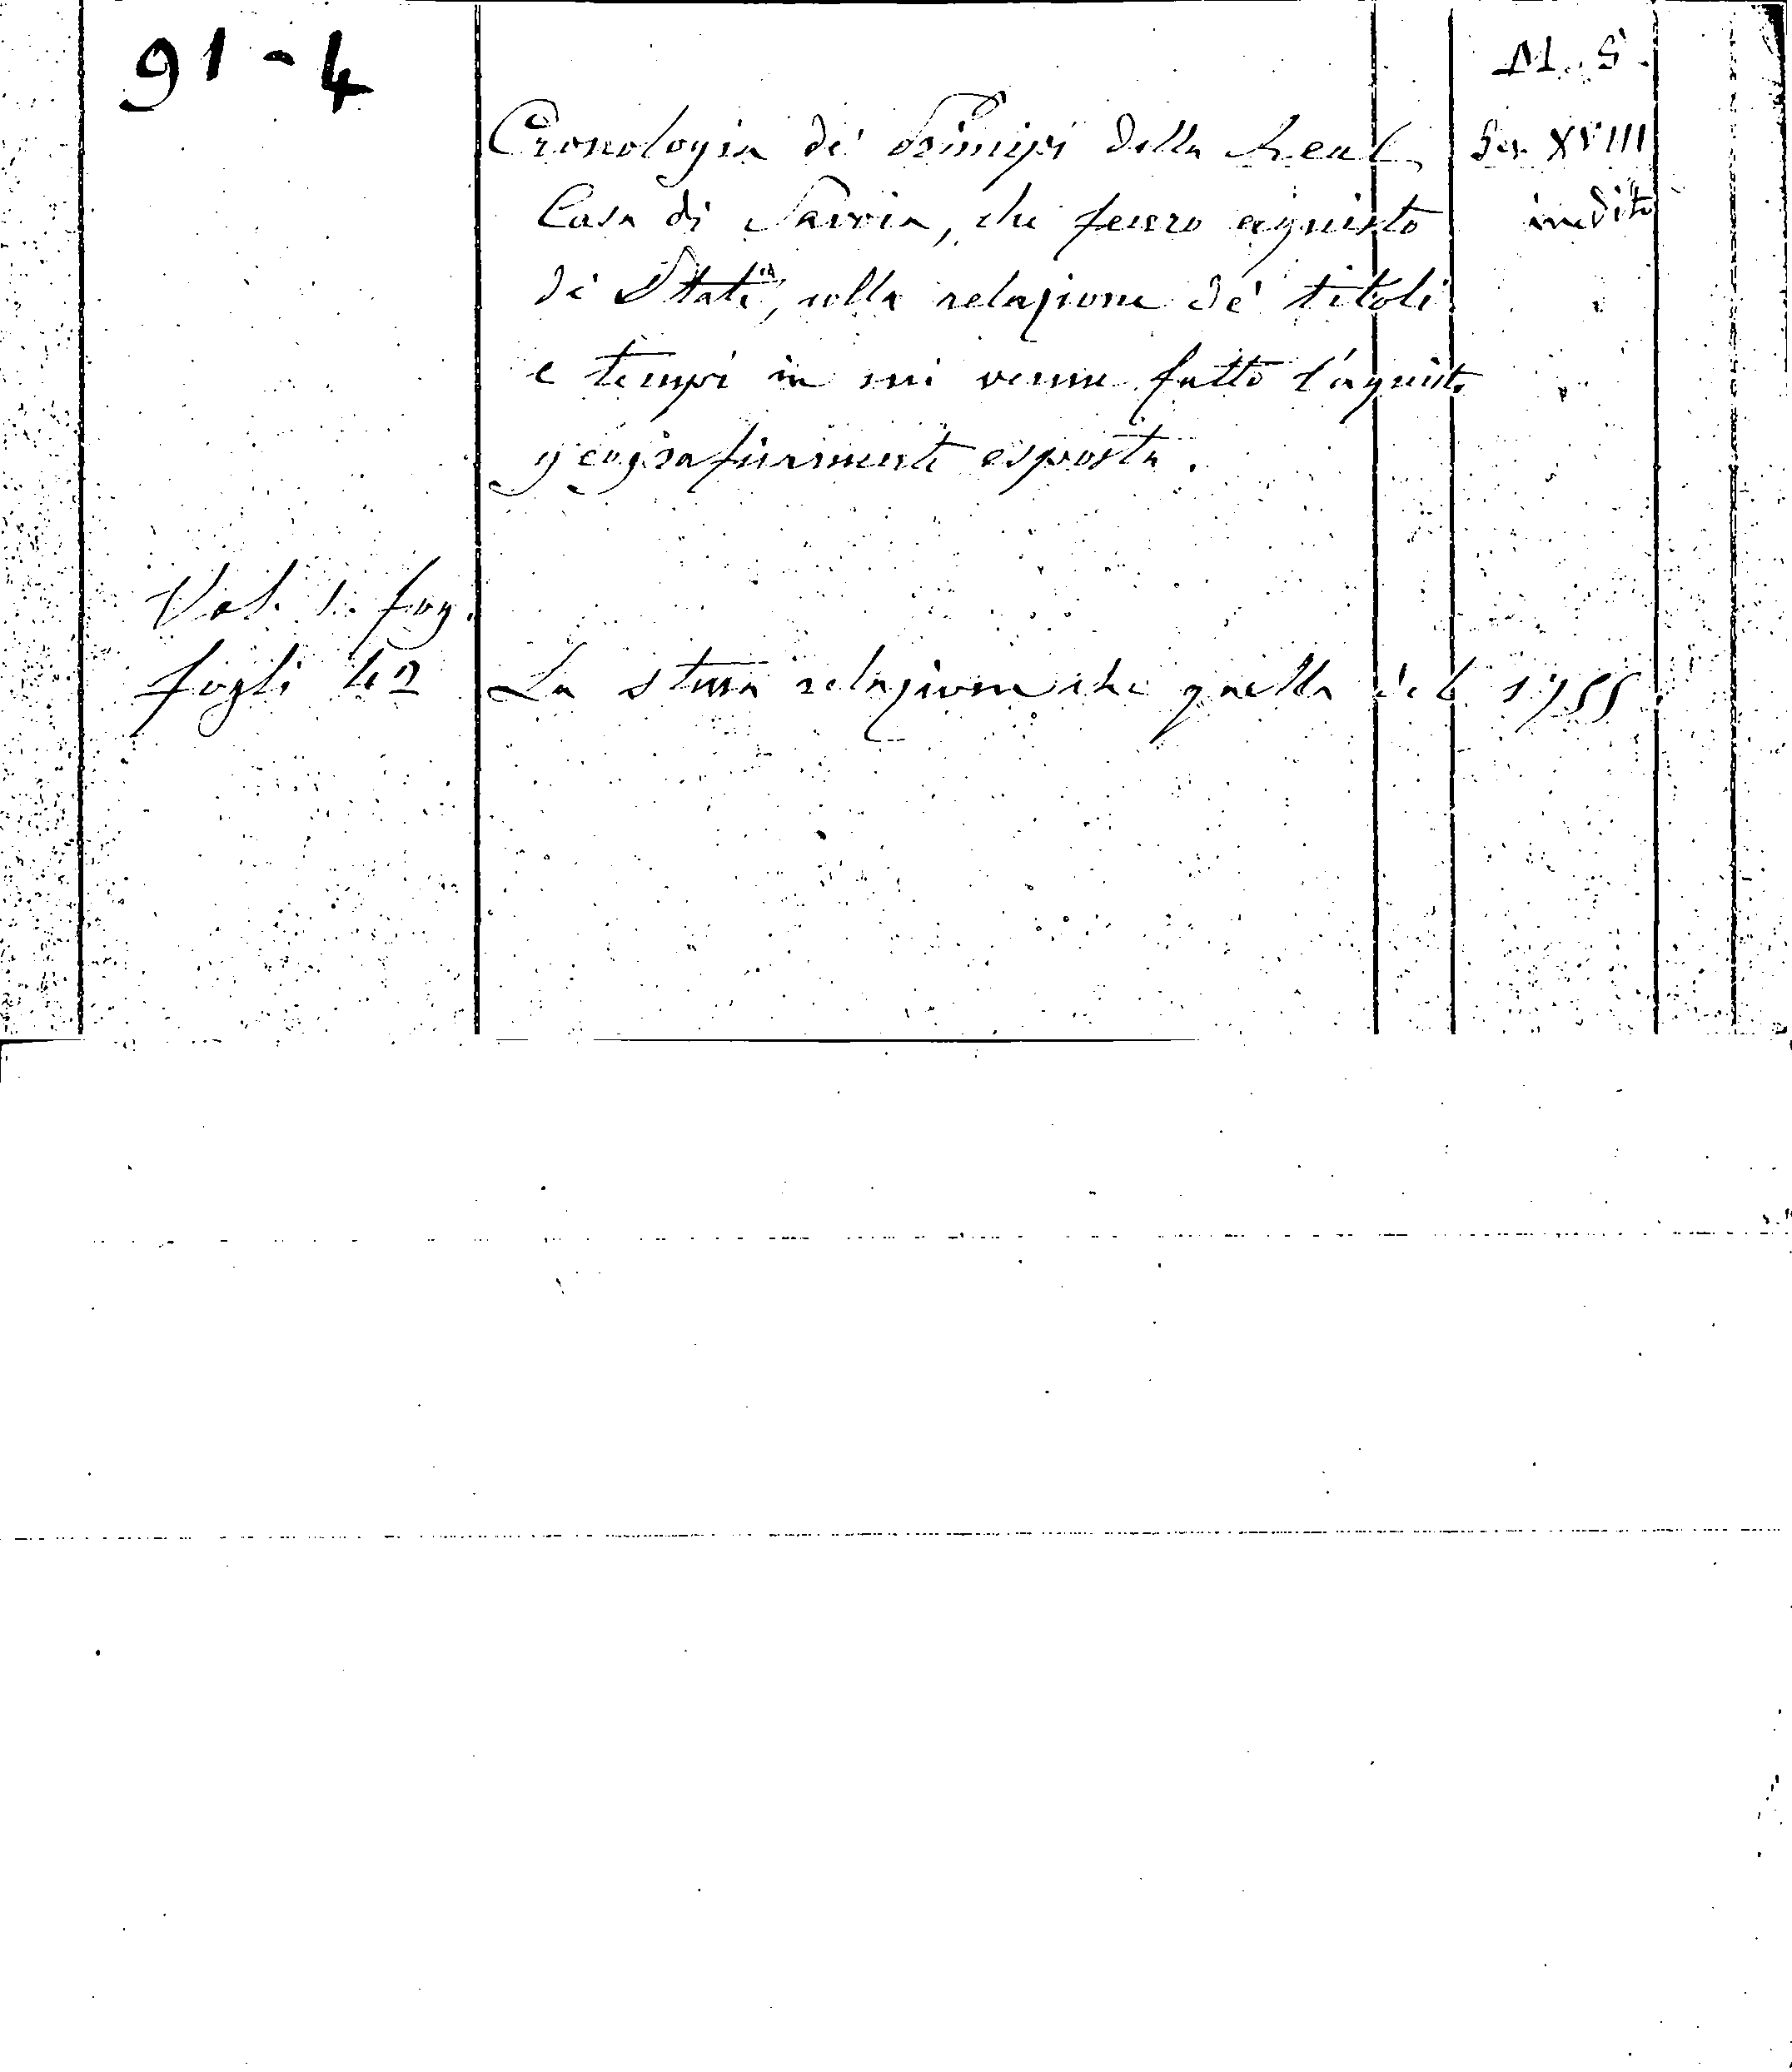 91-4
M. S.
Cronologia de' Principi della Real
Sec. XVIII
Casa di Savoia, che fecero acquisto
inedito
di Stati, colla relazione de' titoli
e tempi in cui venne fatto l'acquisto
geograficamente esposta.
Vol. 1. fog.
fogli 42
La stessa relazione che quella del 1755.